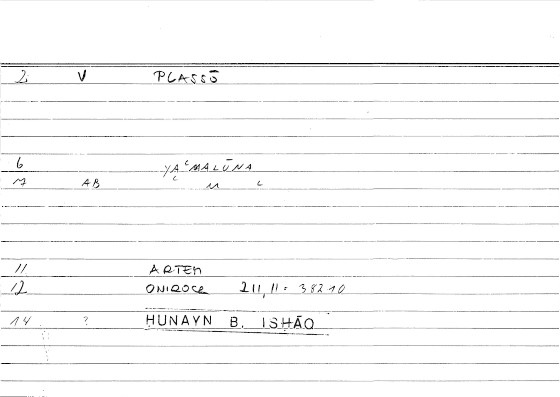 2 V PLASSŌ
6 YAʿMALŪNA
7 AB
11 ARTEM
12 ONIROCR 211,11 = 38210
14 ? HUNAYN B. ISHĀQ